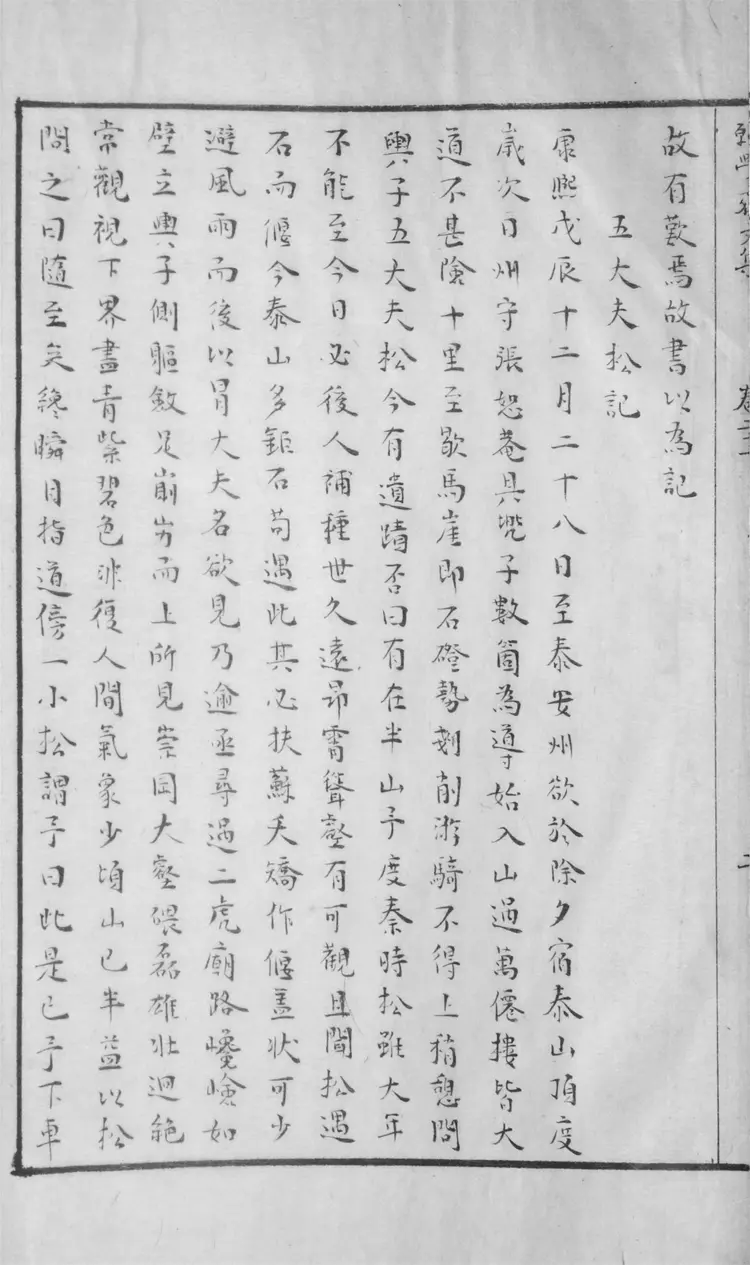 故有歎焉故書以為記
五大夫松記
康熙戊辰十二月二十八日至泰安州欲於除夕宿泰山頂度
歲次日州守張恕菴具兜子數箇為導始入山過萬僊摟皆大
道不甚險十里至歇馬崖即石磴勢剗削游騎不得上稍憩問
輿子五大夫松今有遺蹟否曰有在半山予度秦時松雖大年
不能至今日必後人補種世久遠昻霄聳壑有可觀且聞松遇
石而偃今泰山多鉅石茍遇此其必扶蘇夭矯作偃盖狀可少
避風雨而後以冒大夫名欲見乃逾亟尋過二虎廟路巉嶮如
壁立輿子側軀斂足崩劣而上所見崇岡大壑磈磊雄壯迥絶
常觀視下界盡青紫碧色非復人間氣象少頃山已半益以松
問之曰隨至矣終瞬目指道傍一小松謂予曰此是已予下車
文集
卷二